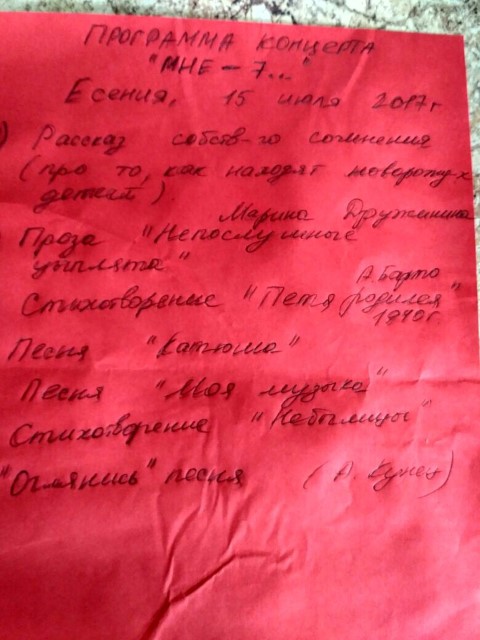 ПРОГРАММА КОНЦЕРТА
"МНЕ – 7..."
Есения, 15 июля 2017г
) Рассказ собств-го сочинения
(про то, как находят новорожд-х
детей)
Марина Дружинина
Проза "Непослушные
цыплята"
А. Барто
Стихотворение "Петя родился"
1940г.
Песня "Катюша"
Песня "Моя музыка"
Стихотворение "Небылицы"
"Оглянись" песня (А. Кунец)